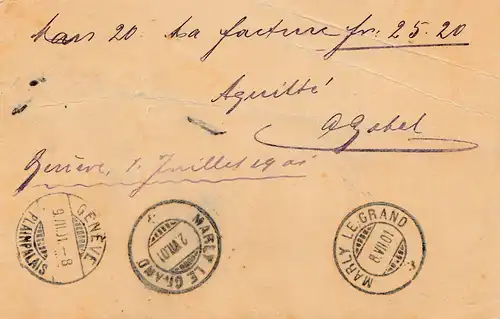 Mars 20. Ma facture fr. 25.20
Aquitté
Genève, 1. Juillet 1901
GENÈVE
PLAINPALAIS
MARLY LE GRAND
2 VII.01
MARLY LE GRAND
8.VII.01